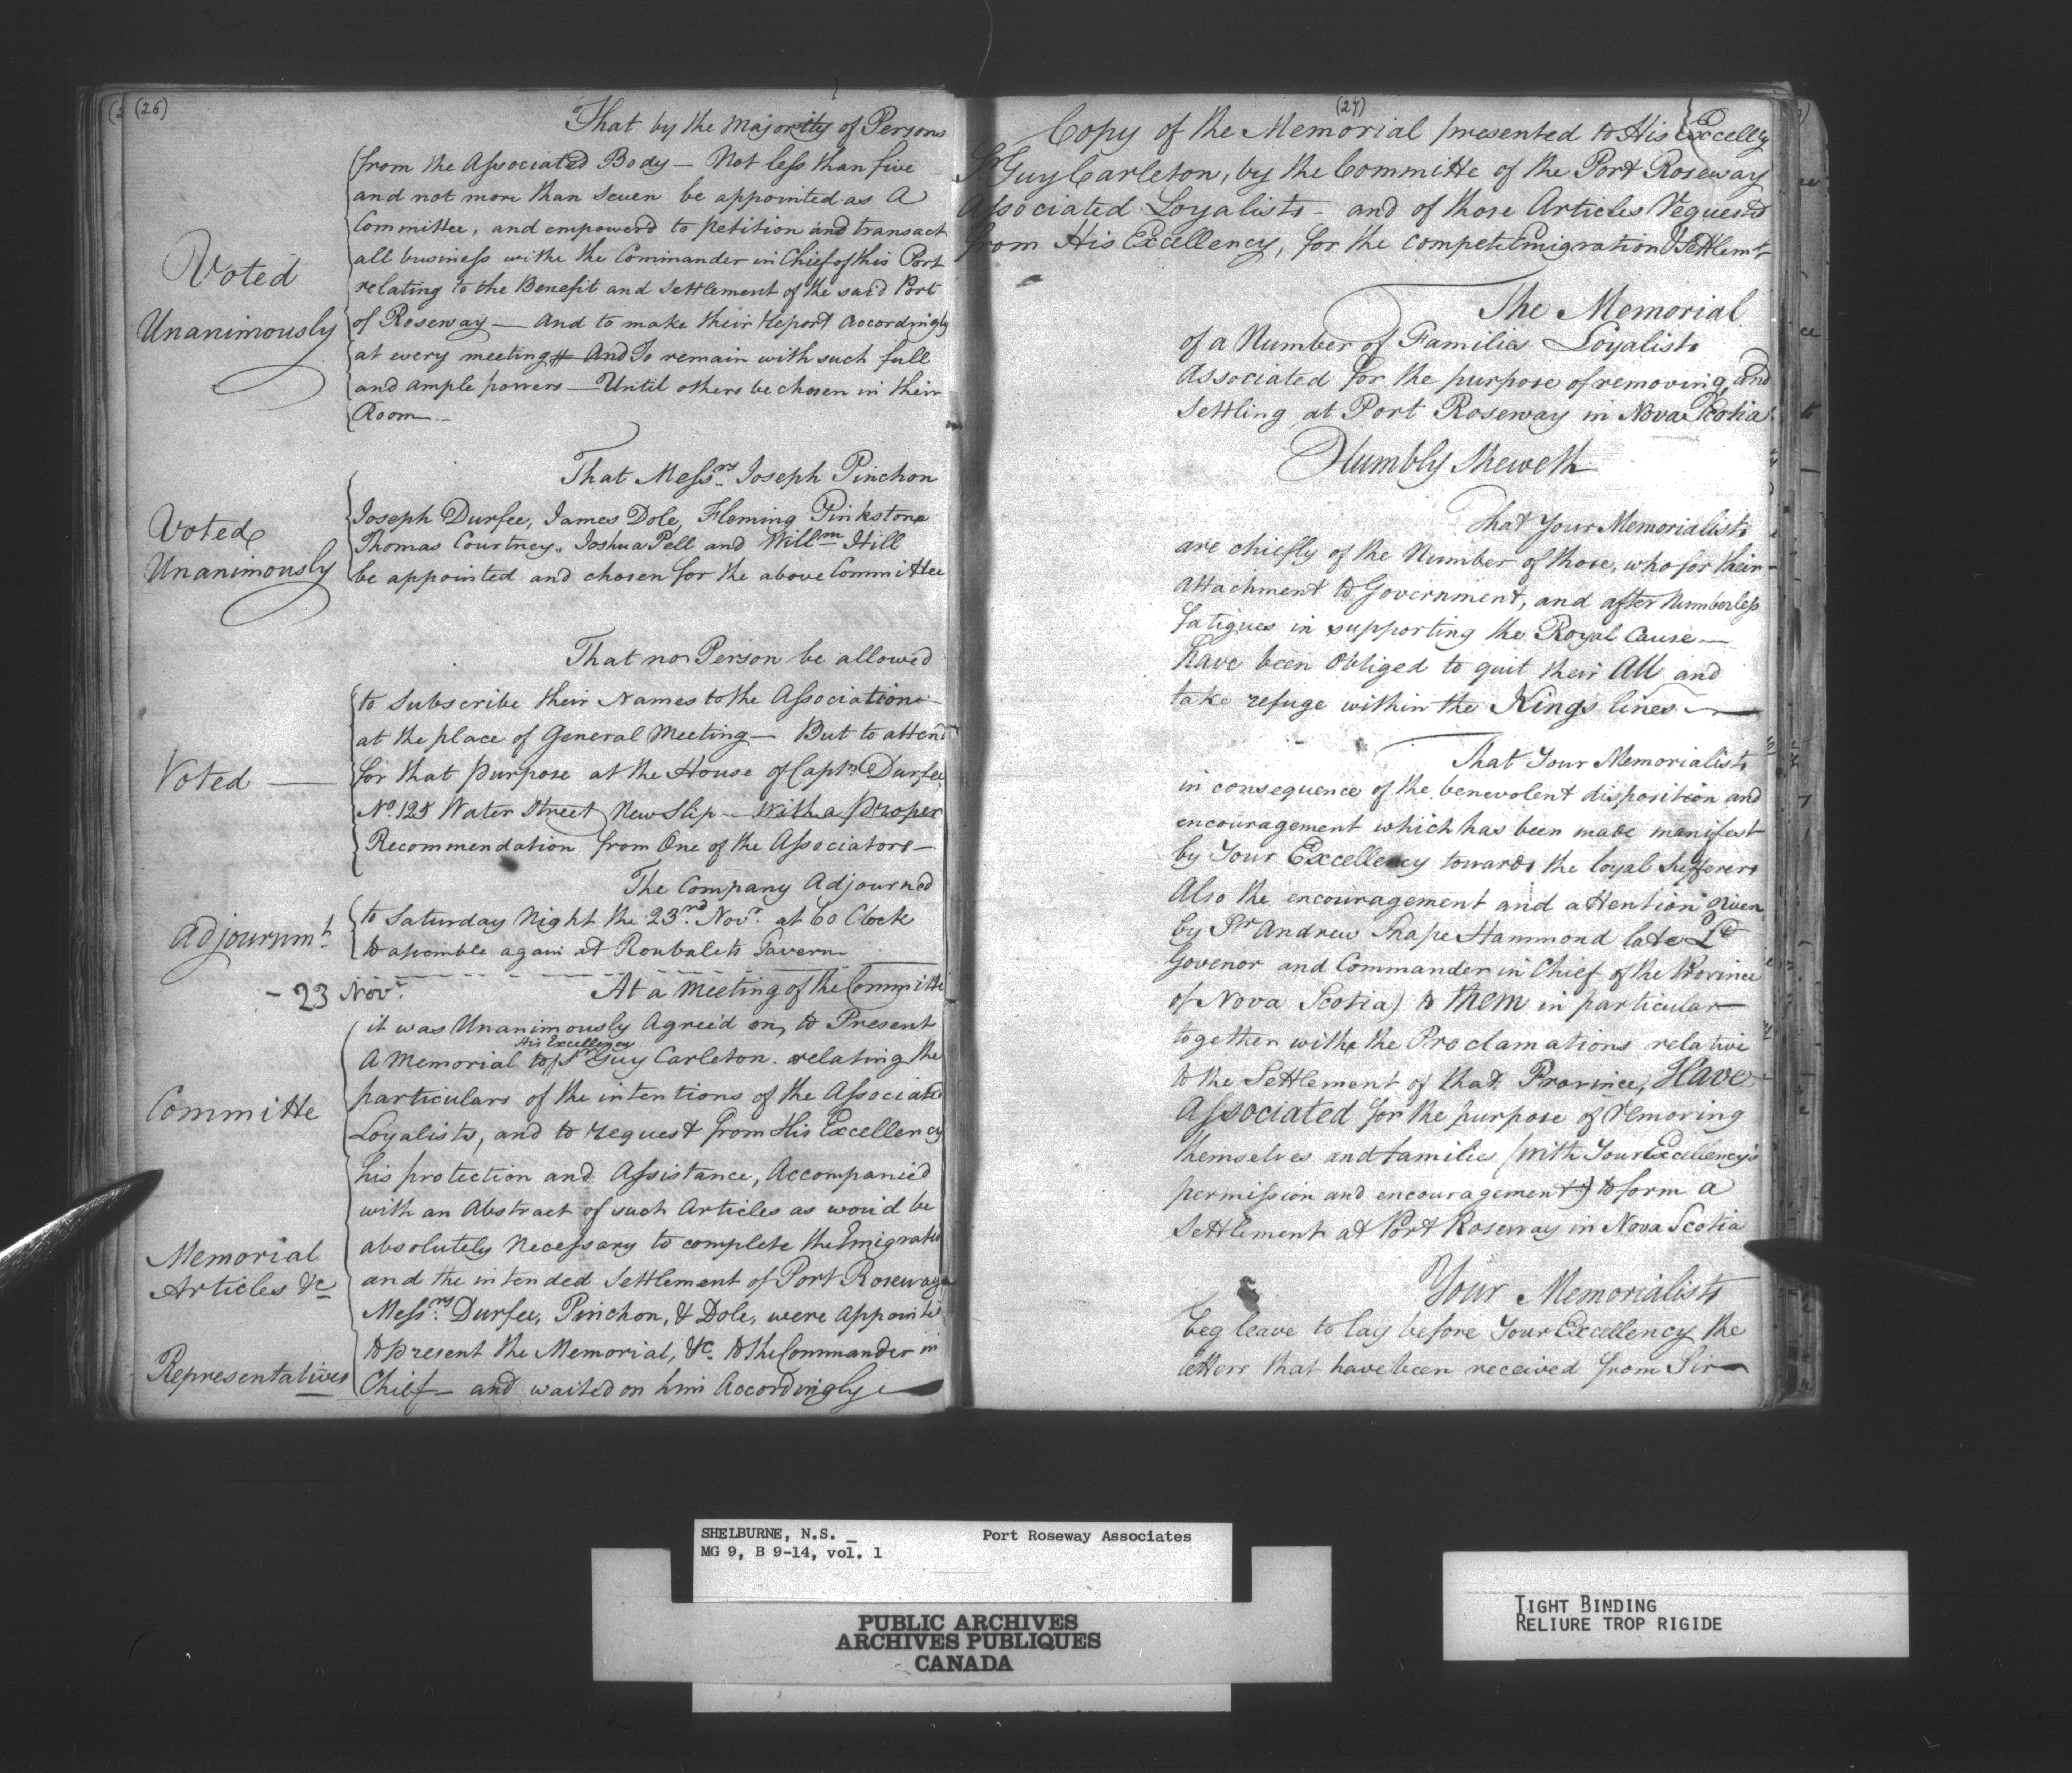 (26)
That by the Majority of Persons
from the Associated Body — Not less than five
and not more than Seven be appointed as A
Committee, and empowerd to petition and transact
all business withe the Commander in Chief of this Port
Voted
relating to the Benefit and Settlement of the said Port
Unanimously
of Roseway — And to make their Report Accordingly
at every meeting And To remain with such full
and ample powers — Until others be chosen in their
Room —
That Messrs. Joseph Pinchon
Voted
Joseph Durfee, James Dole, Fleming Pinkstone
Thomas Courtney, Joshua Pell and Willm Hill
Unanimously
be appointed and chosen for the above Committee
That no Person be allowed
to Subscribe their Names to the Association
at the place of General Meeting — But to attend
Voted —
for that Purpose at the House of Captn. Durfee,
No. 125 Water Street New Slip — With a Proper
Recommendation from One of the Associators —
The Company Adjourned
Adjournmt.
to Saturday Night the 23rd. Novr. at 6 o Clock
to assemble again at Roubalets Tavern
- 23 Novr.
At a Meeting of the Committe
it was Unanimously Agreid on, to Present
His Excellency
A Memorial to Sr. Guy Carleton. relating the
Committe
particulars of the intentions of the Associated
Loyalists, and to request from His Excellency
his protection and Assistance, Accompanied
with an Abstract of such Articles as wou'd be
Memorial
absolutely Necessary to complete the Emigratio
Articles &c
and the intended Settlement of Port Roseway
Messrs. Durfee, Pinchon, & Dole, were appointed
Representatives
to present the Memorial, &c. to the Commander in
Chief — and waited on him Accordingly —
(27)
Copy of the Memorial presented to His Excelly
Sr. Guy Carleton, by the Committe of the Port Roseway
Associated Loyalists — and of those Articles requestd
from His Excellency, for the compete Emigration & Settlemt.
The Memorial
of a Number of Families Loyalists
Associated for the purpose of removing, and
Settling at Port Roseway in Nova Scotia.
Humbly Sheweth
That Your Memorialists
are chiefly of the Number of those, who for their
Attachment to Government, and after Numberless
fatigues in supporting the Royal Cause —
have been Obliged to quit their All and
take refuge within the Kings lines —
That Your Memorialists
in consequence of the benevolent disposition and
encouragement which has been made manifest
by Your Excellency towards the loyal Sufferers
Also the encouragement and attention given
by Sr. Andrew Snape Hammond late Lt
Govenor and Commander in Chief of the Province
of Nova Scotia) to them in particular —
together withe the Proclamations relative
to the Settlement of that Province, Have
Associated for the purpose of removing
themselves and families (with Your Excellency's
permission and encouragement) to form a
Settlement at Port Roseway in Nova Scotia
Your Memorialists
beg leave to lay before Your Excellency the
letters that have been received from Sir —
SHELBURNE, N.S. — Port Roseway Associates
MG 9, B 9-14, vol. 1
PUBLIC ARCHIVES
ARCHIVES PUBLIQUES
CANADA
TIGHT BINDING
RELIURE TROP RIGIDE